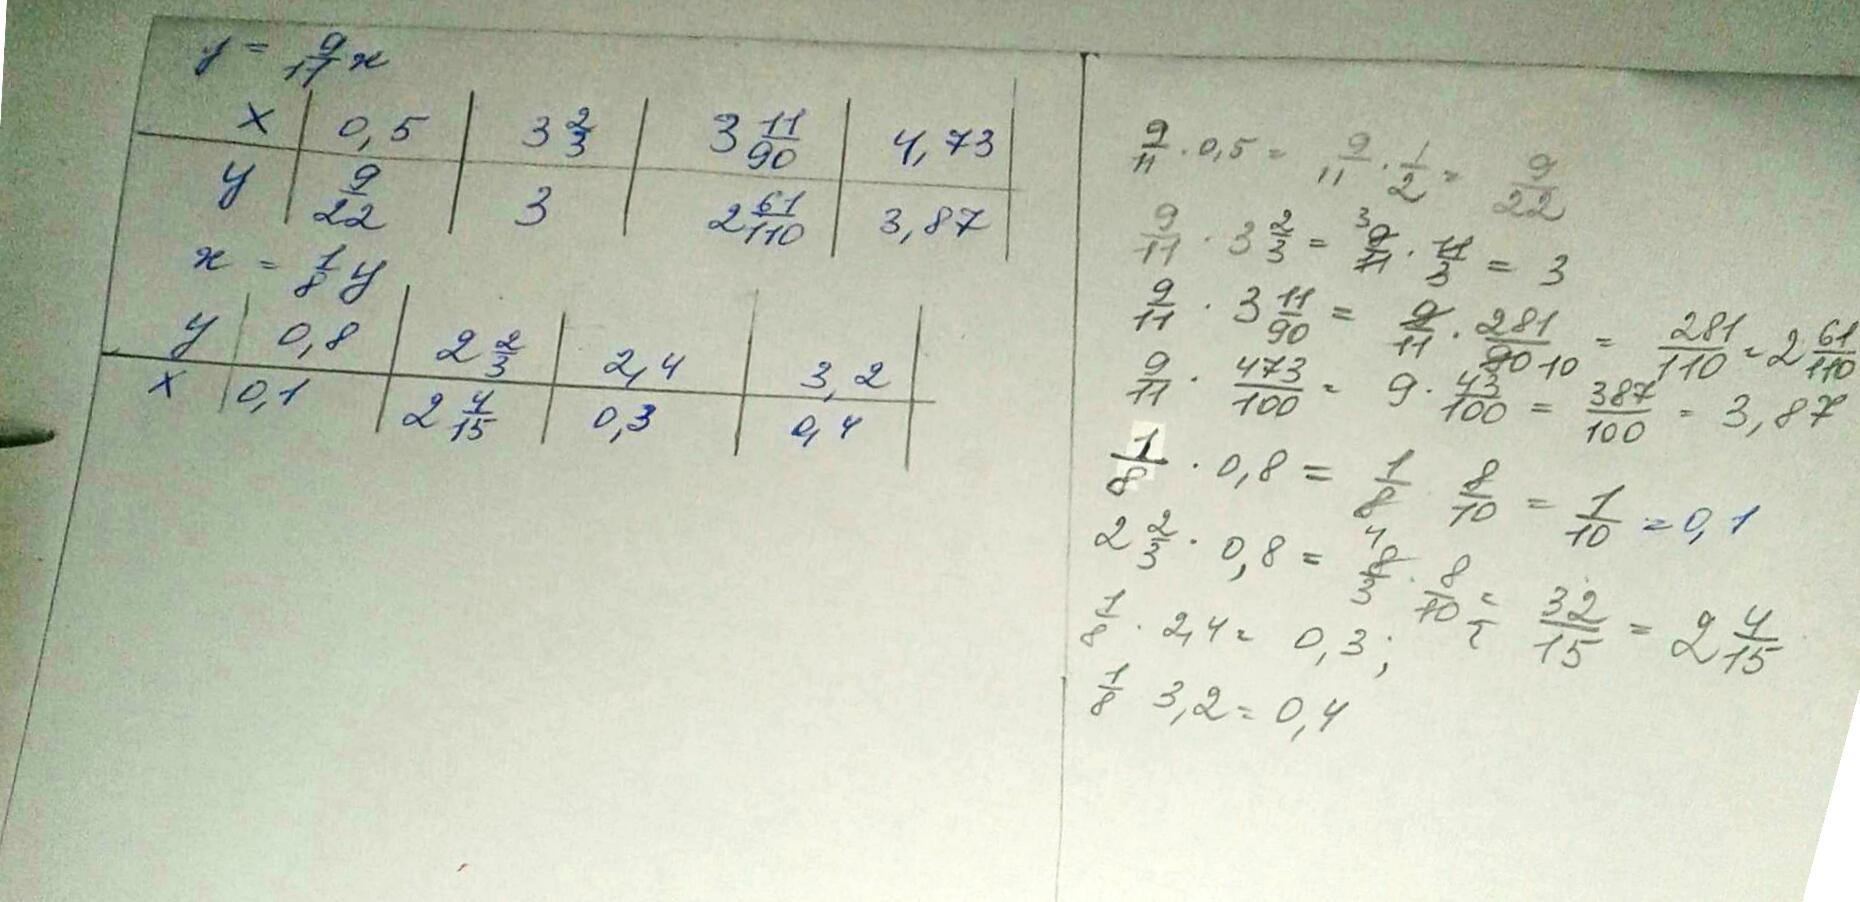 y = 9/11 x
x | 0,5 | 3 2/3 | 3 11/90 | 4,73
y | 9/22 | 3 | 2 61/110 | 3,87
x = 1/8 y
y | 0,8 | 2 2/3 | 2,4 | 3,2
x | 0,1 | 2 4/15 | 0,3 | 0,4
9/11 · 0,5 = 9/11 · 1/2 = 9/22
9/11 · 3 2/3 = 3 9/11 · 11/3 = 3
9/11 · 3 11/90 = 9/11 · 281/90 10 = 281/110 = 2 61/110
9/11 · 473/100 = 9 · 43/100 = 387/100 = 3,87
1/8 · 0,8 = 1/8 8/10 = 1/10 = 0,1
2 2/3 · 0,8 = 4 8/3 · 8/10 = 32/15 = 2 4/15
1/8 · 2,4 = 0,3;
1/8 3,2 = 0,4